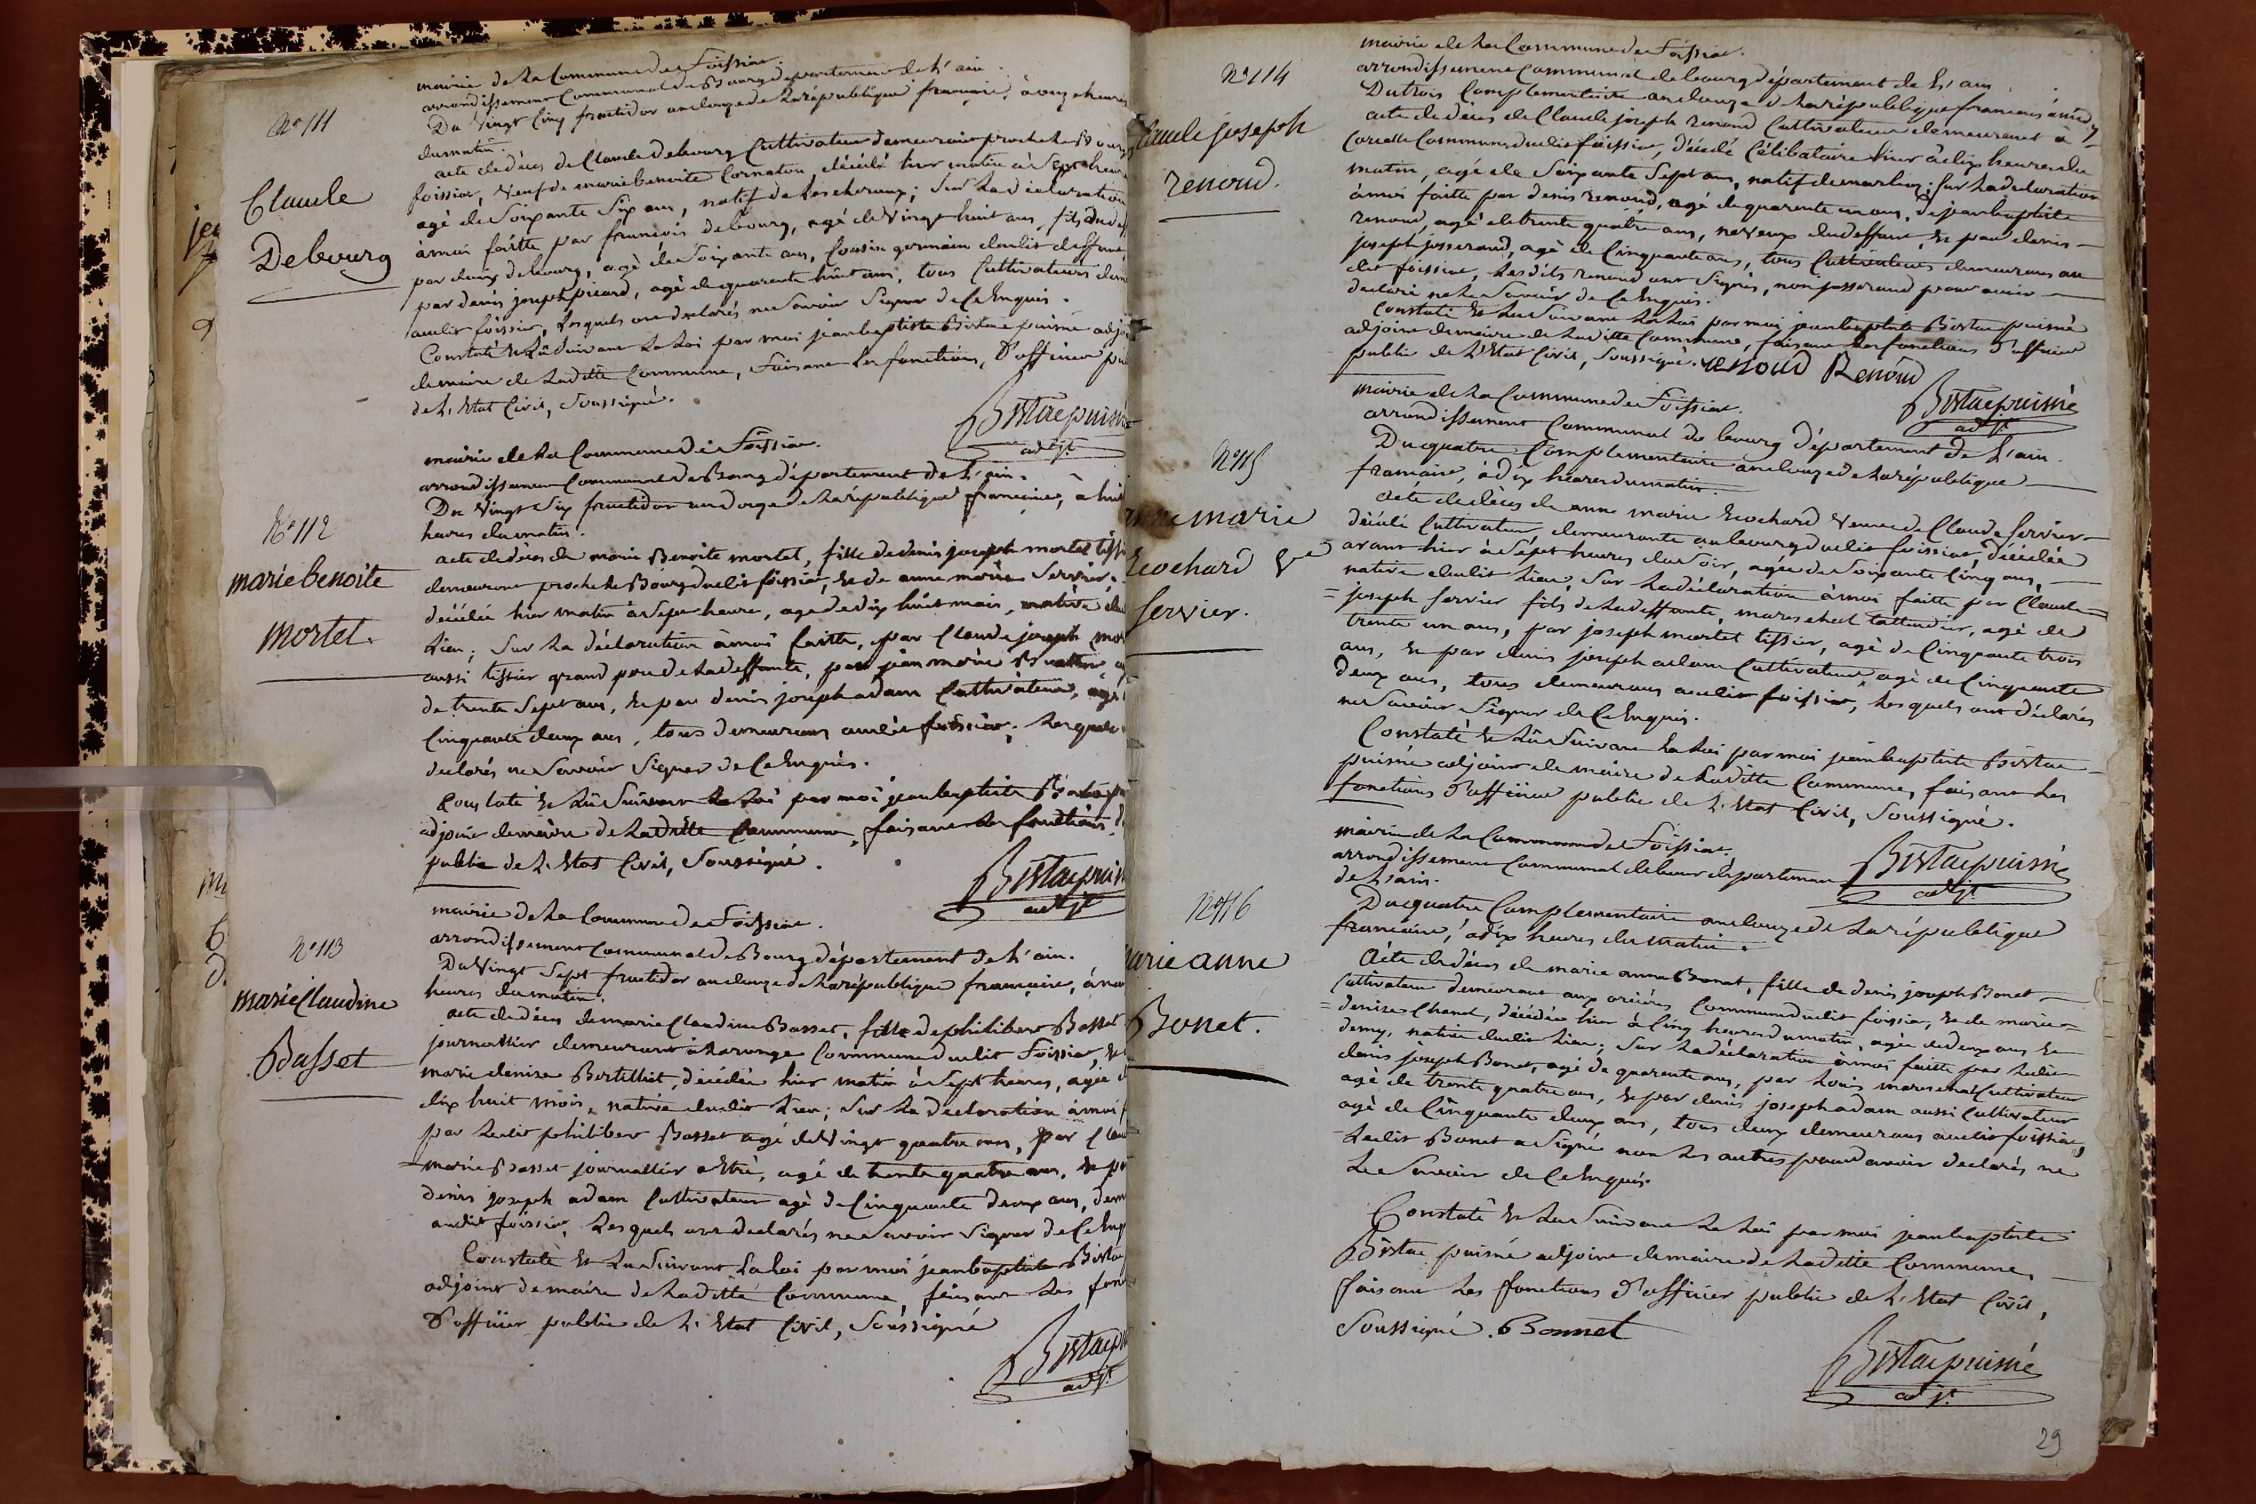 mairie de La Commune de Foissiat.
arrondissement Communal de Bourg département de L'ain.
Du vingt Cinq fructidor an douze de La république francaise, à onze heures
du matin.
acte de déces de Claude Debourg Cultivateur demeurant proche Le Bourg
foissiat, veuf de marie benoite Cornaton, décédé hier matin à Sept heures
agé de Soixante Six ans, natif de Lescheroux; Sur La déclaration
à moi faitte par francois debourg, agé de vingt huit ans, fils du def
par denis debourg, agé de Soixante ans, Cousin germain dudit deffunt,
par denis joseph picard, agé de quarente huit ans, tous Cultivateurs dem
audit foissiat, Lesquels ont déclarés ne Savoir Signer de Ce Enquis.
Constaté Et Lû Suivant La Loi par moi jean baptiste Bistac puisné adjoi
de maire de Laditte Commune, faisant Les fonctions, D'officier pu
de L'Etat Civil, Soussigné.
Bistac puisné
adjt
N° 111
Claude
Debourg
mairie de La Commune de Foissiat.
arrondissement Communal de Bourg département de L'ain.
Du vingt Six fructidor an douze de La république francaise, à huit
heures du matin.
acte de déces de marie Benoite mortel, fille de denis joseph mortel tissi
demeurant proche Le Bourg dudit foissiat, Et de anne marie Servier,
décédée hier matin à Sept heure, agée de dix huit mois, native du
Lieu; Sur La déclaration à moi faitte, par Claude joseph mor
aussi tissier grand pere de Ladeffunte, par jean marie
de trente Sept ans, Et par denis joseph adam Cultivateur, agé
Cinquante deux ans, tous demeurans audit foissiat, Lesquels
declarés ne Savoir Signer de Ce Enquis.
Constaté Et Lû Suivant La Loi par moi jean baptiste Bistac pu
adjoint de maire de Laditte Commune, faisant Les fonctions, D
public de L'Etat Civil, Soussigné.
Bistac puis
adjt
N° 112
marie benoite
mortel.
mairie de La Commune de Foissiat.
arrondissement Communal de Bourg département de L'ain.
Du vingt Sept fructidor an douze de La république francaise, à neu
heures du matin.
acte de déces de marie Claudine Basset, fille de philibert Basset
journallier demeurant à Commune dudit Foissiat, Et
marie denise Bertillet, décédée hier matin à Sept heures, agée d
dix huit mois, native dudit Lieu; Sur La declaration à moi f
par Ledit philibert Basset agé de Vingt quatre ans, par Clau
marie Basset journallier agé de trente quatre ans, Et pa
denis joseph adam Cultivateur agé de Cinquante deux ans, dem
audit foissiat, Lesquels ont declarés ne Savoir Signer de Ce Enq
Constaté Et Lu Suivant La Loi par moi jean baptiste Bistac
adjoint de maire de Laditte Commune, faisant Les fonc
D'officier public de L'Etat Civil, Soussigné
Bistac p
adjt
N° 113
marie Claudine
Basset
mairie de La Commune de Foissiat.
arrondissement Communal de bourg département de L'ain.
Du trois Complementaire an douze de La république francaise à midy
acte de déces de Claude joseph renoud Cultivateur demeurant à
Commune dudit foissiat, décédé Célibataire hier à dix heures du
matin, agé de Soixante Sept ans, natif de marboz; Sur La déclaration
à moi faitte par denis renoud, agé de quarente un ans, De jean baptiste
renoud, agé de trente quatre ans, neveux dudeffunt, Et par denis
joseph josserand, agé de Cinquante ans, tous Cultivateurs demeurans au
dit foissiat, Lesdits renoud ont Signés, non josserand pour avoir
declaré ne Le Savoir de Ce Enquis.
Constaté Et Lu Suivant La Loi par moi jean baptiste Bistac puisné
adjoint de maire de Laditte Commune, faisant Les fonctions D'officier
public de L'Etat Civil, Soussigné. renoud Renoud
Bistac puisné
adjt
N° 114
Claude joseph
renoud.
mairie de La Commune de Foissiat.
arrondissement Communal de bourg département de L'ain.
Du quatre Complementaire an douze de La république
francaise, à dix heures du matin.
acte de déces de anne marie Rochard veuve de Claude Servier
décédé Cultivateur demeurante au bourg dudit foissiat, décédée
avant hier à Sépt heures du Soir, agée de Soixante Cinq ans,
native dudit Lieu, Sur La déclaration à moi faitte par Claude
joseph Servier fils de Ladeffunte, marechal tattandier, agé de
trente un ans, par joseph mortel tissier, agé de Cinquante trois
ans, Et par denis joseph adam Cultivateur, agé de Cinquante
deux ans, tous demeurans audit foissiat, Lesquels ont déclarés
ne Savoir Signer de Ce Enquis.
Constaté Et Lû Suivant La Loi par moi jean baptiste Bistac
puisné adjoint de maire de Laditte Commune, faisant Les
fonctions D'officier public de L'Etat Civil, Soussigné.
Bistac puisné
adjt
N° 115
anne marie
Rochard Ve
Servier.
mairie de La Commune de Foissiat.
arrondissement Communal de bourg département
de L'ain.
Du quatre Complementaire an douze de La république
francaise, à dix heures du matin.
Acte de déces de marie anne Bonet, fille de denis joseph Bonet
Cultivateur demeurant aux Commune dudit foissiat, Et de marie
denise Chanel, décédée hier à Cinq heures du matin, agée de deux ans Et
demy, native dudit Lieu; Sur La déclaration à moi faitte par Ledit
denis joseph Bonet, agé de quarente ans, par Louis marechal Cultivateur
agé de trente quatre ans, Et par denis joseph adam aussi Cultivateur
agé de Cinquante deux ans, tous deux demeurans audit foissiat,
Ledit Bonet a Signé non Les autres pour avoir declarés ne
Le Savoir de Ce Enquis.
Constaté Et Lu Suivant La Loi par moi jean baptiste
Bistac puisné adjoint de maire de Laditte Commune,
faisant Les fonctions D'officier public de L'Etat Civil,
Soussigné. Bonnet
Bistac puisné
adjt
N° 116
marie anne
Bonet.
29